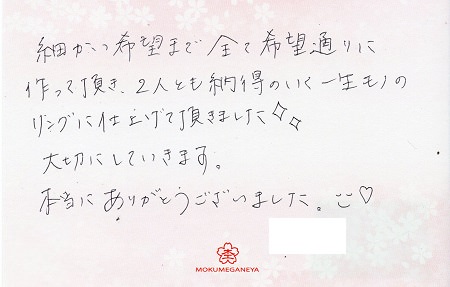 細かい希望まで全て希望通りに
作って頂き、2人とも納得のいく一生モノの
リングに仕上げて頂きました✧✧
大切にしていきます。
本当にありがとうございました。
MOKUMEGANEYA